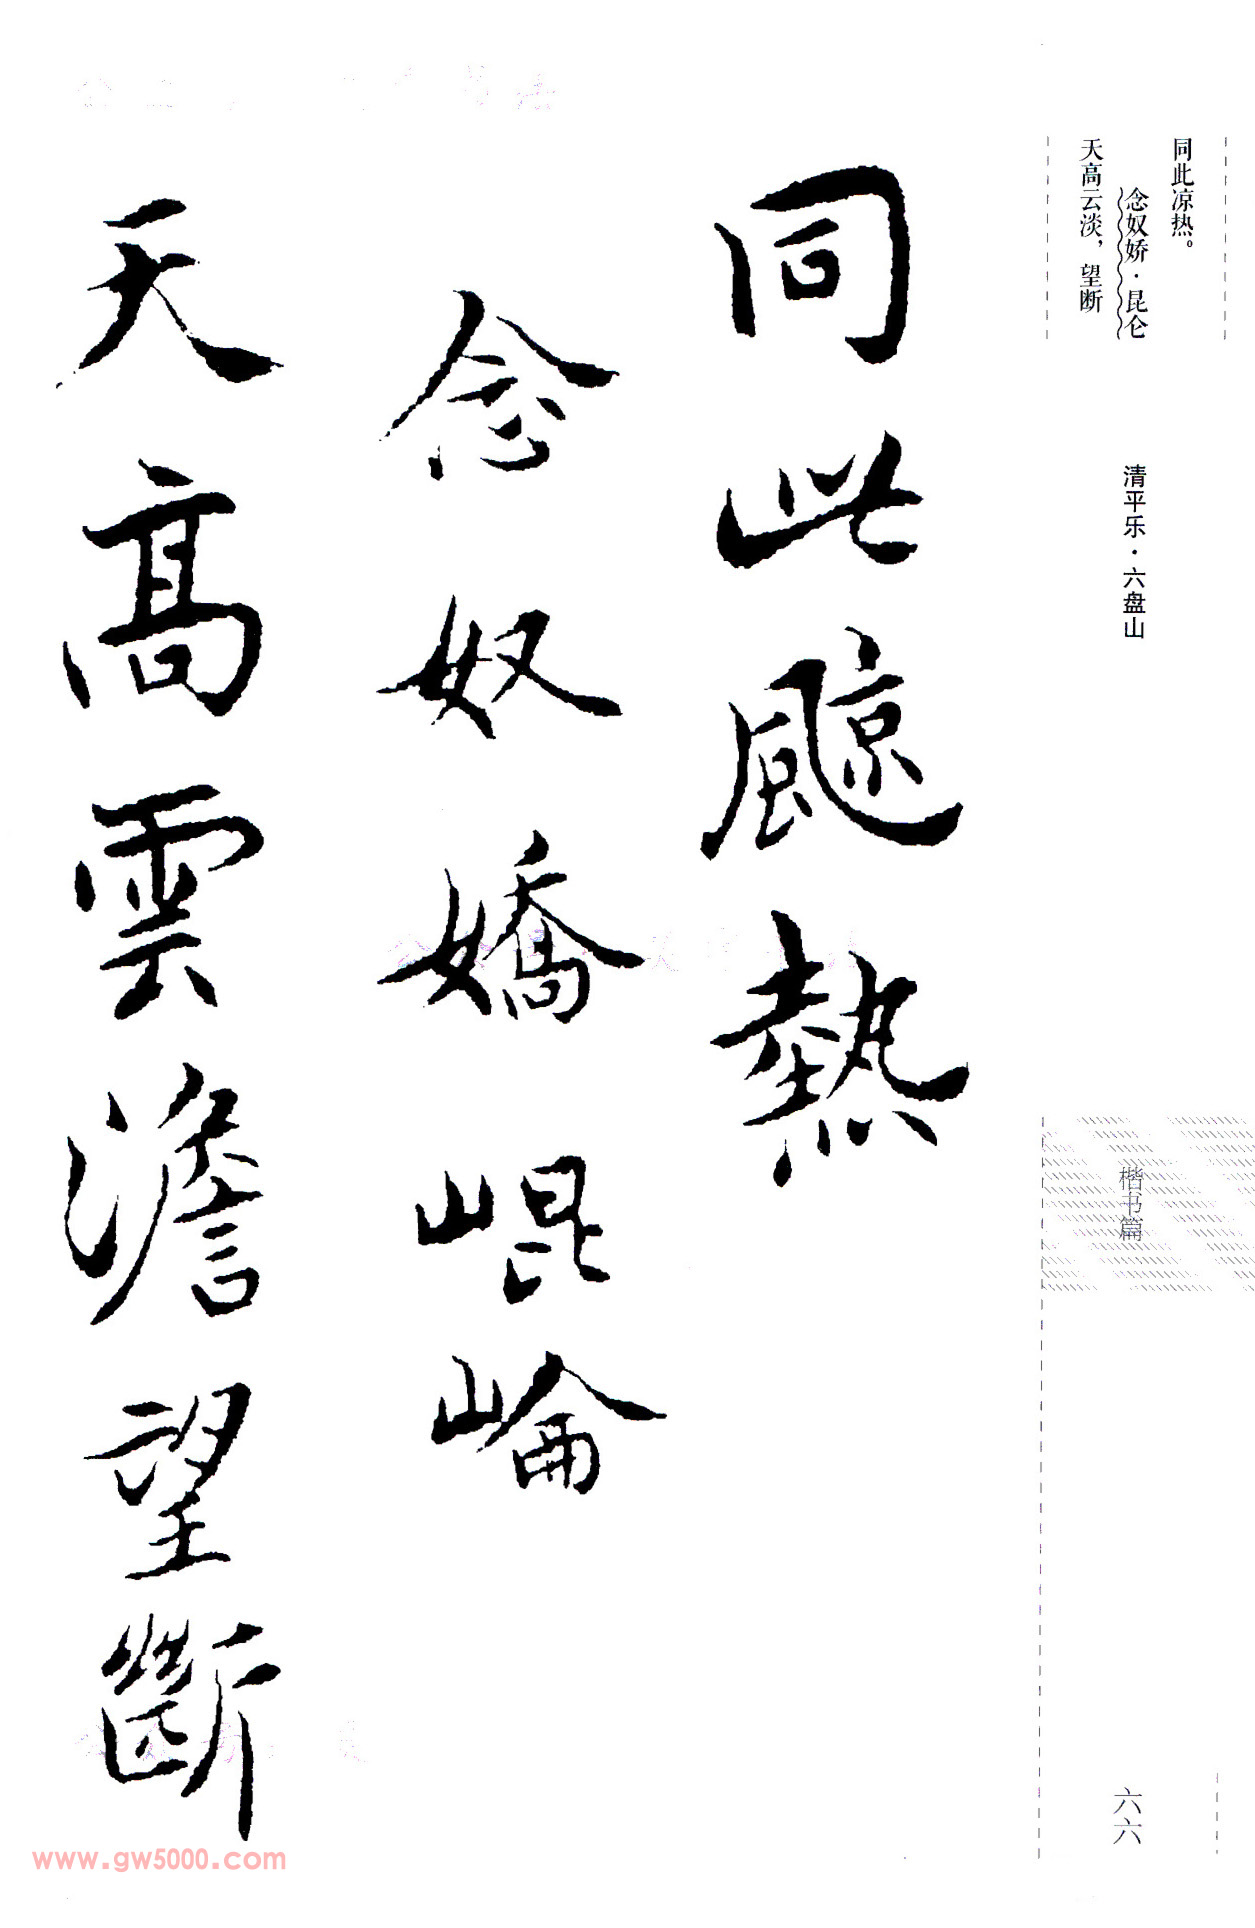 同此凉热。
念奴娇·昆仑
天高云淡，望断
清平乐·六盘山
楷书篇
六六
同此飇熱
念奴嬌崐崘
天高雲澹望斷
www.gw5000.com